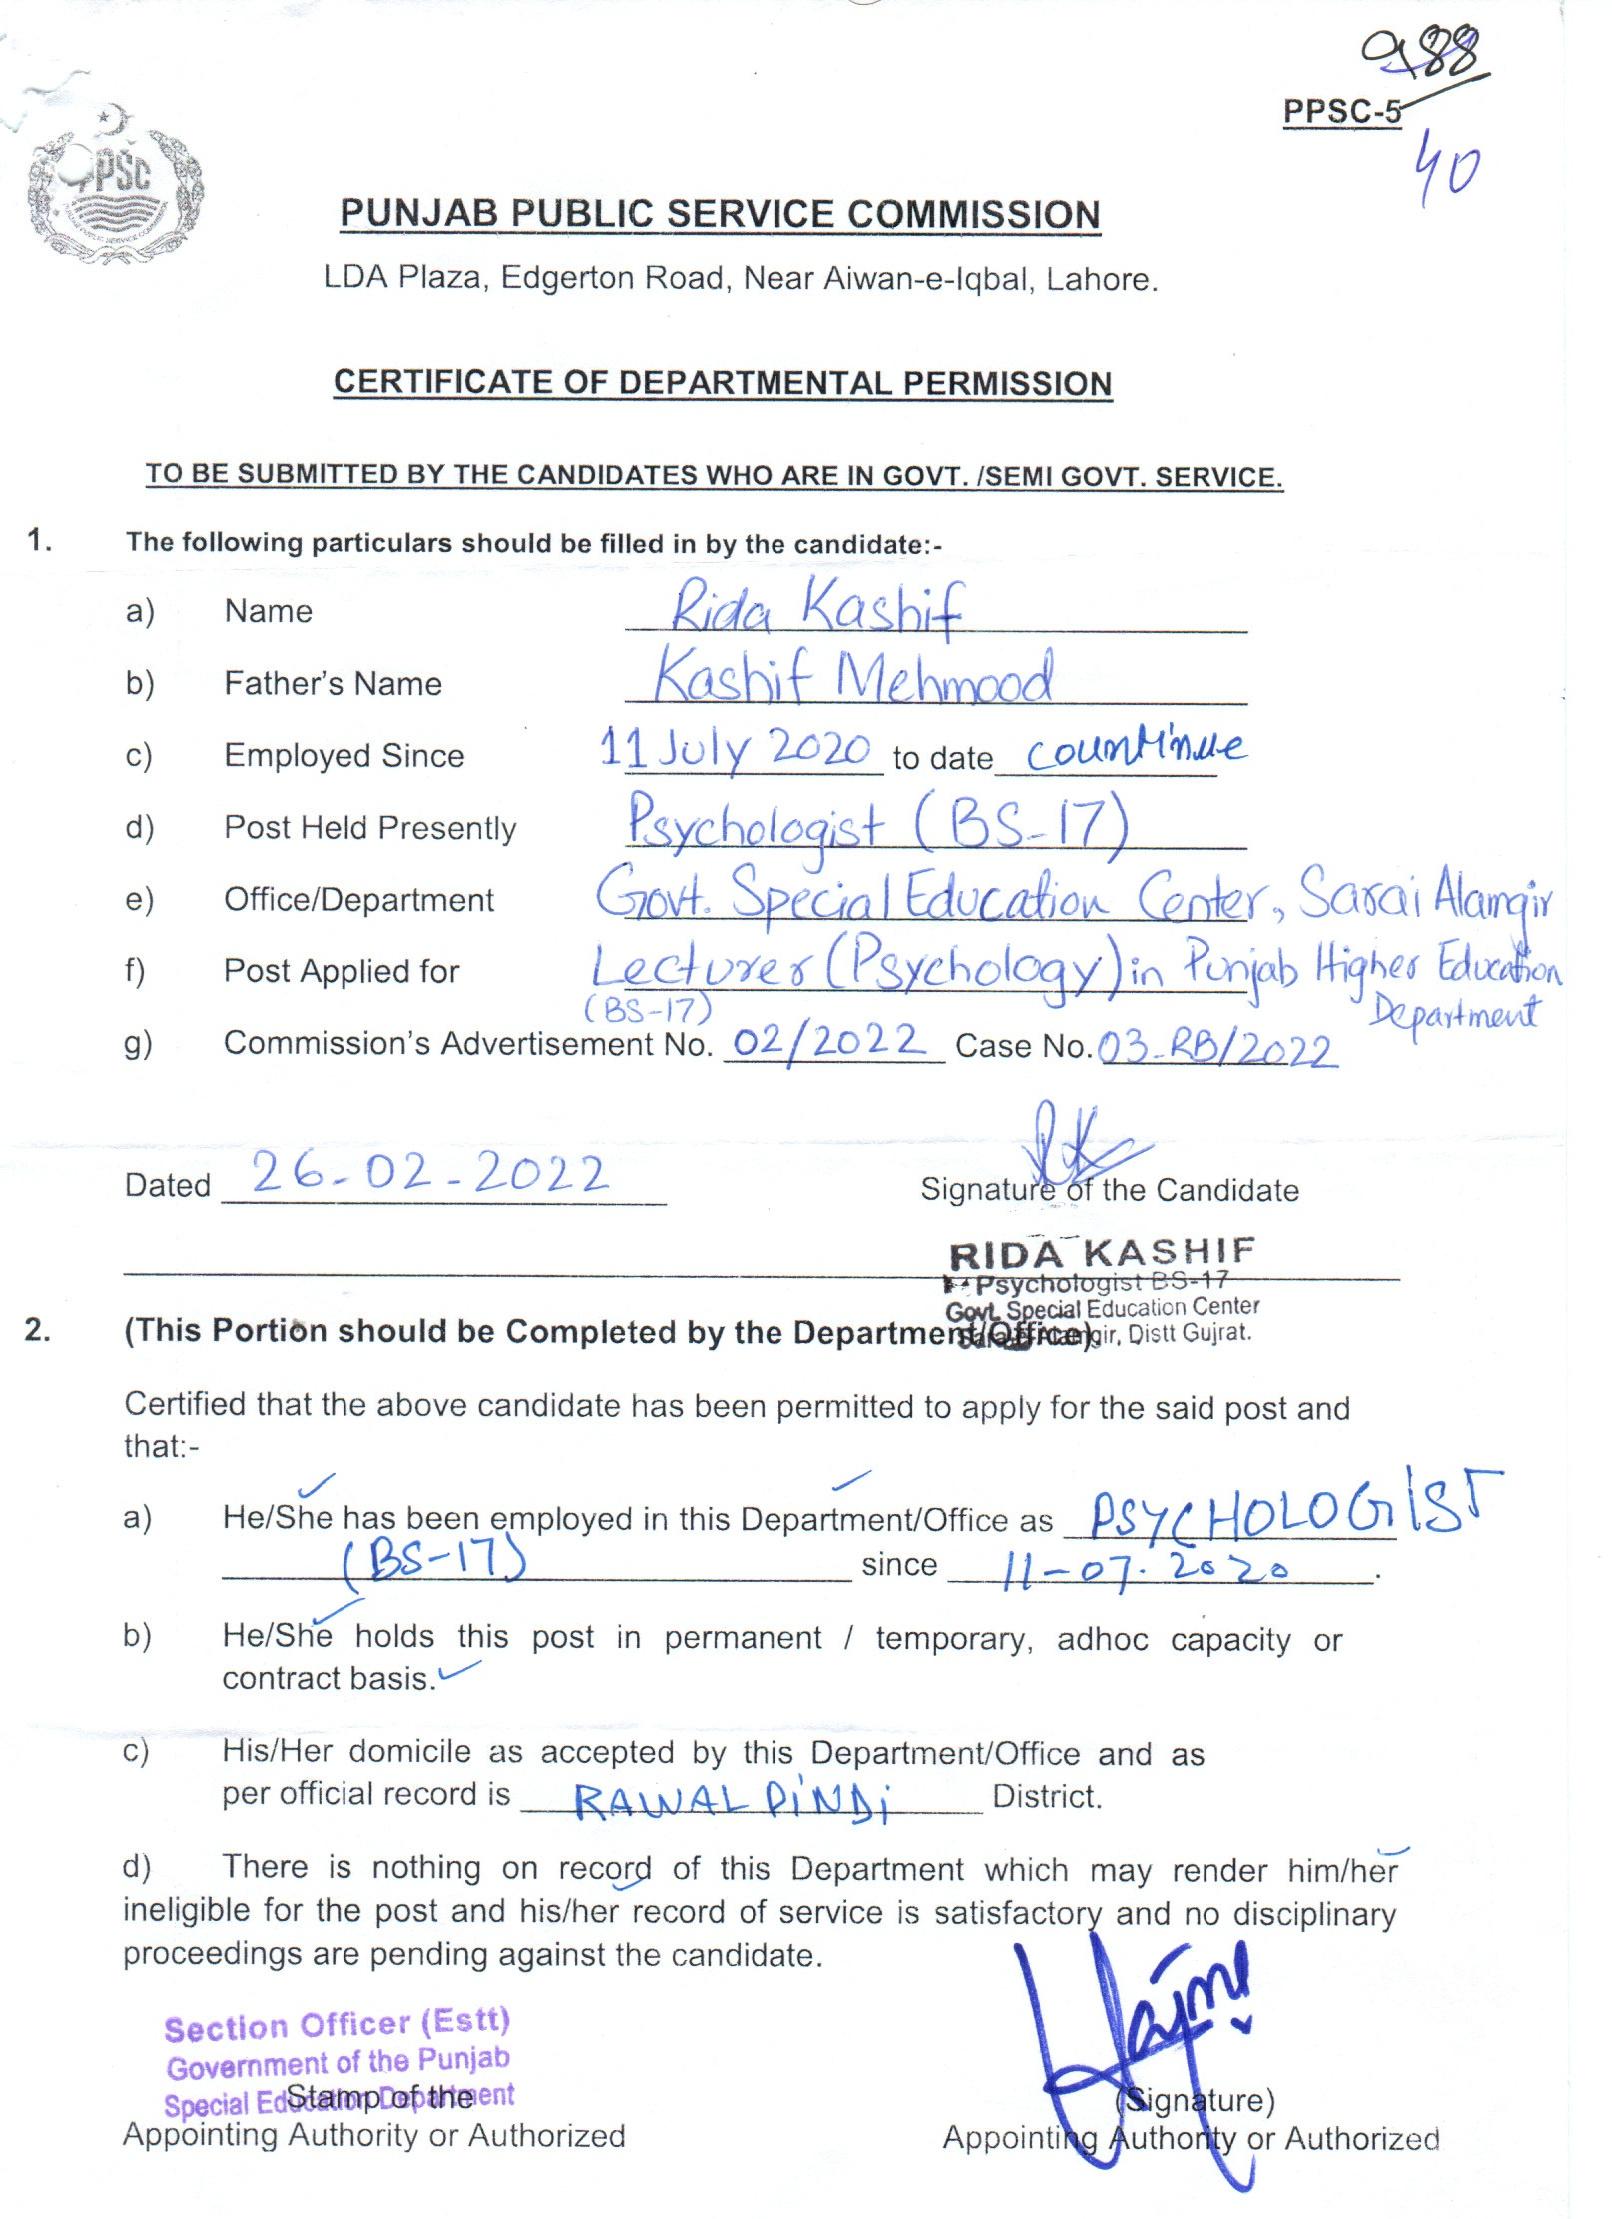 988
PPSC-5
40
PPSC
PUNJAB PUBLIC SERVICE COMMISSION
LDA Plaza, Edgerton Road, Near Aiwan-e-Iqbal, Lahore.
CERTIFICATE OF DEPARTMENTAL PERMISSION
TO BE SUBMITTED BY THE CANDIDATES WHO ARE IN GOVT. /SEMI GOVT. SERVICE.
1. The following particulars should be filled in by the candidate:-
a) Name Rida Kashif
b) Father's Name Kashif Mehmood
c) Employed Since 11 July 2020 to date countinue
d) Post Held Presently Psychologist (BS-17)
e) Office/Department Govt. Special Education Center, Sarai Alamgir
f) Post Applied for Lecturer (Psychology) in Punjab Higher Education
(BS-17) Department
g) Commission's Advertisement No. 02/2022 Case No. 03-RB/2022
Dated 26-02-2022 Signature of the Candidate
RIDA KASHIF
Psychologist BS-17
Govt. Special Education Center
2. (This Portion should be Completed by the Department/Office)
Alamgir, Distt Gujrat.
Certified that the above candidate has been permitted to apply for the said post and
that:-
a) He/She has been employed in this Department/Office as PSYCHOLOGIST
(BS-17) since 11-07-2020.
b) He/She holds this post in permanent / temporary, adhoc capacity or
contract basis.
c) His/Her domicile as accepted by this Department/Office and as
per official record is RAWALPINDI District.
d) There is nothing on record of this Department which may render him/her
ineligible for the post and his/her record of service is satisfactory and no disciplinary
proceedings are pending against the candidate.
Section Officer (Estt)
Government of the Punjab
Special Education Department
Stamp of the (Signature)
Appointing Authority or Authorized Appointing Authority or Authorized